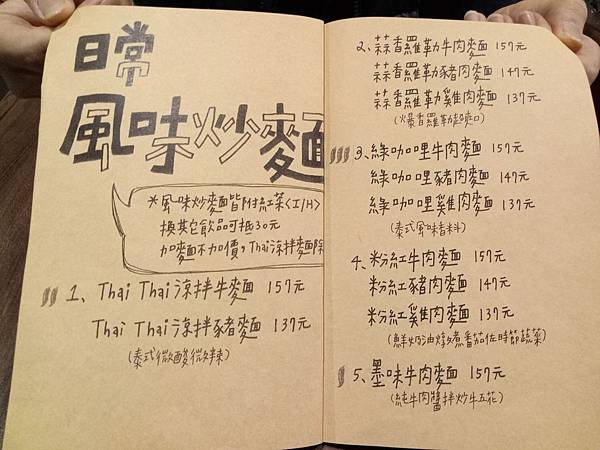 日常
風味炒麵
*風味炒麵皆附紅茶<I/H>
換其它飲品可抵30元
加麵不加價,Thai涼拌麵除
1、Thai Thai涼拌牛麵 157元
Thai Thai涼拌豬麵 137元
(泰式微酸微辣)
2、蒜香羅勒牛肉麵 157元
蒜香羅勒豬肉麵 147元
蒜香羅勒雞肉麵 137元
(爆香羅勒超爽口)
3、綠咖哩牛肉麵 157元
綠咖哩豬肉麵 147元
綠咖哩雞肉麵 137元
(泰式風味香料)
4、粉紅牛肉麵 157元
粉紅豬肉麵 147元
粉紅雞肉麵 137元
(鮮奶油燉煮番茄佐時節蔬菜)
5、墨味牛肉麵 157元
(純牛肉醬拌炒牛五花)